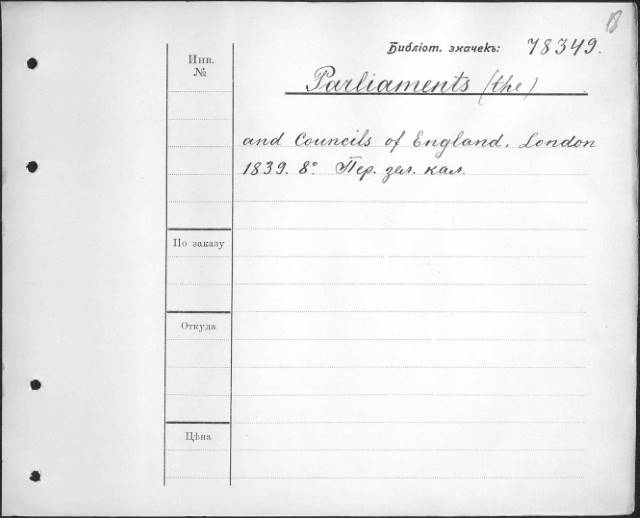 В
Библіот. значекъ: 78349.
Инв.
№
Parliaments (the)
and Councils of England. London
1839. 8° Пер. зел. кал.
По заказу
Откуда
Цѣна